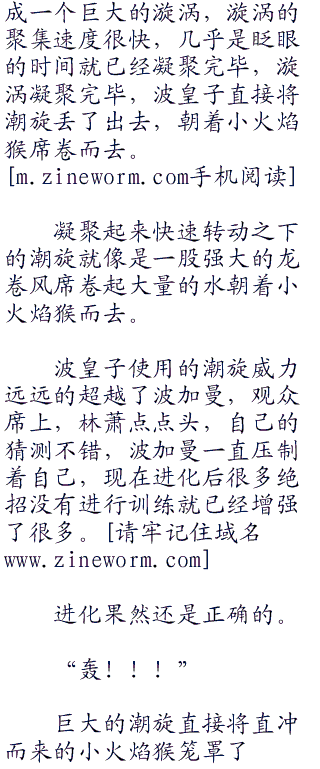 成一个巨大的漩涡，漩涡的
聚集速度很快，几乎是眨眼
的时间就已经凝聚完毕，漩
涡凝聚完毕，波皇子直接将
潮旋丢了出去，朝着小火焰
猴席卷而去。
[m.zineworm.com手机阅读]
凝聚起来快速转动之下
的潮旋就像是一股强大的龙
卷风席卷起大量的水朝着小
火焰猴而去。
波皇子使用的潮旋威力
远远的超越了波加曼，观众
席上，林萧点点头，自己的
猜测不错，波加曼一直压制
着自己，现在进化后很多绝
招没有进行训练就已经增强
了很多。[请牢记住域名
www.zineworm.com]
进化果然还是正确的。
“轰！！！”
巨大的潮旋直接将直冲
而来的小火焰猴笼罩了